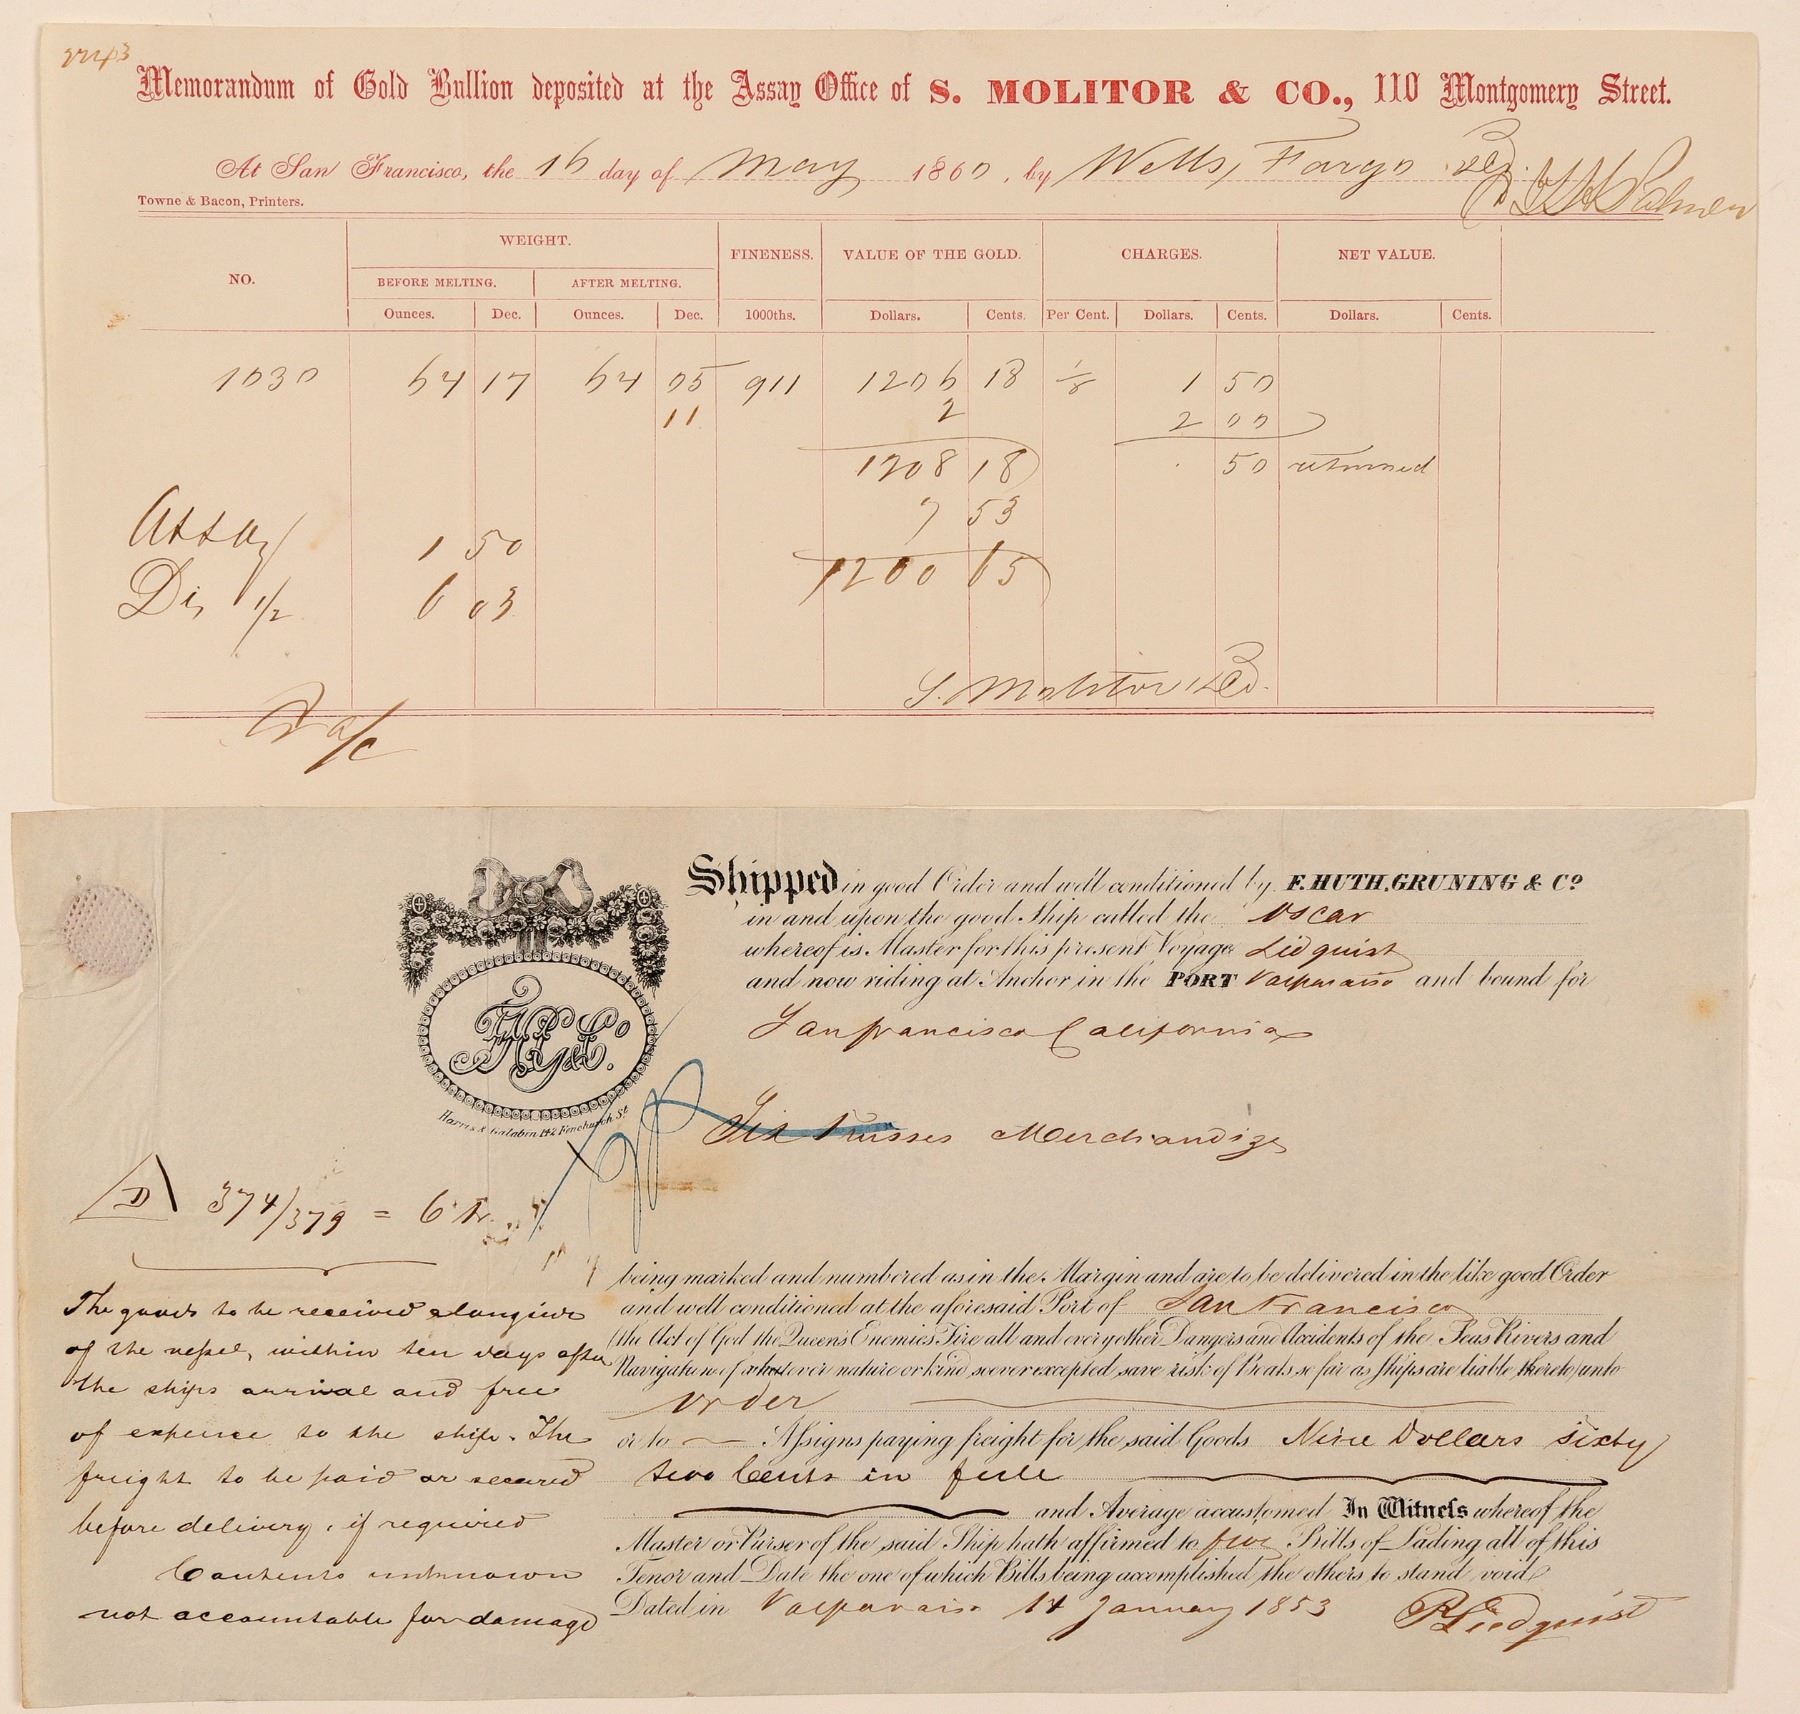 2243
Memorandum of Gold Bullion deposited at the Assay Office of S. MOLITOR & CO., 110 Montgomery Street.
At San Francisco, the 16 day of May 1860, by Wells, Fargo & Co.
Towne & Bacon, Printers.
NO. WEIGHT. FINENESS. VALUE OF THE GOLD. CHARGES. NET VALUE.
BEFORE MELTING. AFTER MELTING.
Ounces. Dec. Ounces. Dec. 1000ths. Dollars. Cents. Per Cent. Dollars. Cents. Dollars. Cents.
1030 64 17 64 05 911 1206 18 1/8 1 50
11 2 2 00
1208 18 50 returned
7 53
Assay 1 50
1200 65
Dis 1/2 6 03
S. Molitor & Co.
a/c
Shipped in good Order and well conditioned by F. HUTH, GRUNING & Co
in and upon the good Ship called the Oscar
whereof is Master for this present Voyage Lidquist
and now riding at Anchor in the PORT Valparaiso and bound for
San francisco California
H.G. & Co.
Harris & Galabin 142 Fenchurch St
Six Trusses Merchandize
D 374/379 = 6 Tr.
being marked and numbered as in the Margin and are to be delivered in the like good Order
and well conditioned at the aforesaid Port of San Francisco
(the Act of God the Queens Enemies Fire all and every other Dangers and Accidents of the Seas Rivers and
Navigation of whatever nature or kind soever excepted save risk of Boats so far as Ships are liable thereto) unto
order
or to Assigns paying freight for the said Goods Nine Dollars sixty
two Cents in full
and Average accustomed In Witness whereof the
Master or Purser of the said Ship hath affirmed to five Bills of Lading all of this
Tenor and Date the one of which Bills being accomplished the others to stand void
Dated in Valparaiso 14 January 1853 Liedquist
The goods to be received alongside
of the vessel, within ten days after
the ships arrival and free
of expence to the ship. The
freight to be paid or secured
before delivery, if required
Contents unknown
not accountable for damage